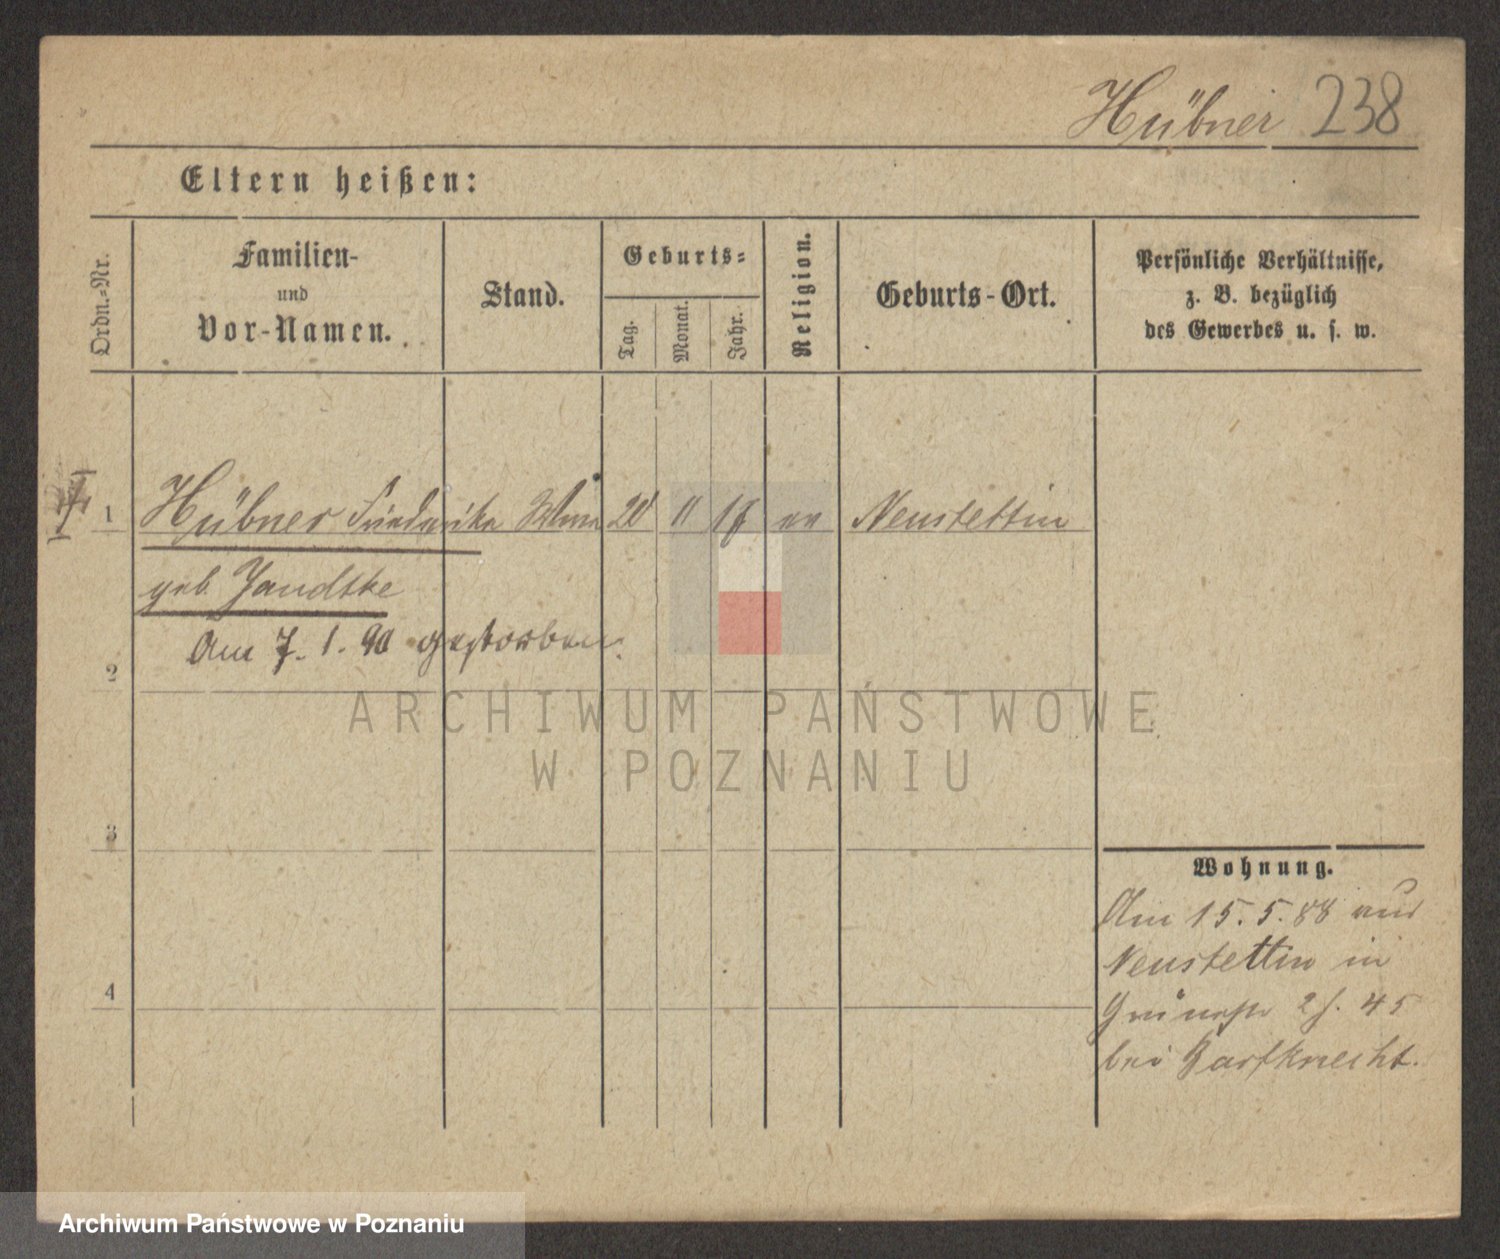 Hübner 238
Eltern heißen:
Ordn.-Nr.
Familien-
und
Vor-Namen.
Stand.
Geburts-
Tag.
Monat.
Jahr.
Religion.
Geburts-Ort.
Persönliche Verhältnisse,
z. B. bezüglich
des Gewerbes u. s. w.
1 Hübner Friederike Wwe 20 11 18 ev Neustettin
geb. Jandtke
Am 7. 1. 90 gestorben.
2
3
4
Wohnung.
Am 15. 5. 88 aus
Neustettin in
45
bei Barfknecht.
ARCHIWUM PAŃSTWOWE
W POZNANIU
Archiwum Państwowe w Poznaniu